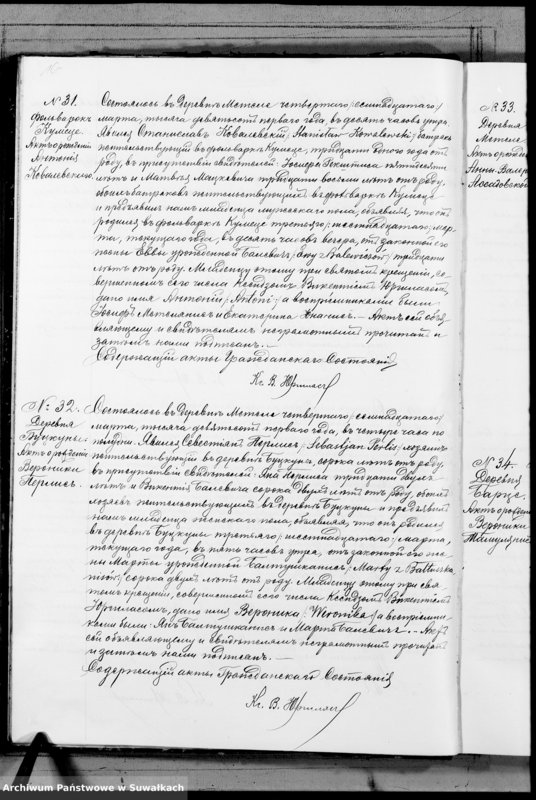 № 31.
Фольварокъ
Кумеце.
Актъ о рожденіи
Антонія
Ковалевскаго
Состоялось въ Деревнѣ Метеле четвертаго /семнадцатаго/
марта, тысяча девятьсотъ перваго года, въ десять часовъ утра.
Явился Станиславъ Ковалевскій /Stanisław Kowalewski/ батракъ
жительствующій въ фольваркѣ Кумеце, тридцати одного года отъ
роду, въ присутствіи свидѣтелей: Іосифа пятидесяти
лѣтъ и Матвѣя Мацкевича тридцати восьми лѣтъ отъ роду,
обоихъ батраковъ жительствующихъ въ фольваркѣ Кумеце
и предъявилъ намъ младенца мужескаго пола, объявляя, что онъ
родился въ фольваркѣ Кумеце третьяго /шестнадцатаго/ мар-
та, текущаго года, въ десять часовъ вечера, отъ законной его
жены Еввы урожденной Балевичъ /Ewy z Balewiczów/ тридцати
лѣтъ отъ роду. Младенцу этому при святомъ крещеніи, со-
вершенномъ сего числа Ксендзомъ Викентіемъ Юргиласомъ,
дано имя Антоній /Antoni/ а воспріемниками были
Іосифъ и Екатерина Актъ сей объя-
вляющему и свидѣтелямъ неграмотнымъ прочитанъ и
затѣмъ нами подписанъ. —
Содержащій акты Гражданскаго Состоянія
Кс. В. Юргиласъ
№ 32.
Деревня
Буцкуны
Актъ о рожденіи
Вероники
Перлисъ.
Состоялось въ Деревнѣ Метеле четвертаго /семнадцатаго/
марта, тысяча девятьсотъ перваго года, въ четыре часа по
полудни. Явился Севастіянъ Перлисъ /Sebastjan Perlis/ хозяинъ
жительствующій въ деревнѣ Буцкуны, сорока лѣтъ отъ роду,
въ присутствіи свидѣтелей: Яна Перлиса тридцати двухъ
лѣтъ и Викентія Балевича сорока двухъ лѣтъ отъ роду, обоихъ
хозяевъ жительствующихъ въ деревнѣ Буцкуны и предъявилъ
намъ младенца женскаго пола, объявляя, что онъ родился
въ деревнѣ Буцкуны третьяго /шестнадцатаго/ марта,
текущаго года, въ пять часовъ утра, отъ законной его же-
ны Марты урожденной Балтушканисъ /Marty z Baltuszka
nisów/ сорока двухъ лѣтъ отъ роду. Младенцу этому при свя
томъ крещеніи, совершенномъ сего числа Ксендзомъ Викентіемъ
Юргиласомъ, дано имя Вероника /Weronika/ а воспріемни-
ками были: Янъ Балтушканисъ и Марта Балевичъ. — Актъ
сей объявляющему и свидѣтелямъ неграмотнымъ прочитанъ
и затѣмъ нами подписанъ. —
Содержащій акты Гражданскаго Состоянія
Кс. В. Юргиласъ
№ 33.
Деревня
Метеле
Актъ о рожденіи
Анны
№ 34.
Деревня
Барце.
Актъ о рожденіи
Вероники
Archiwum Państwowe w Suwałkach